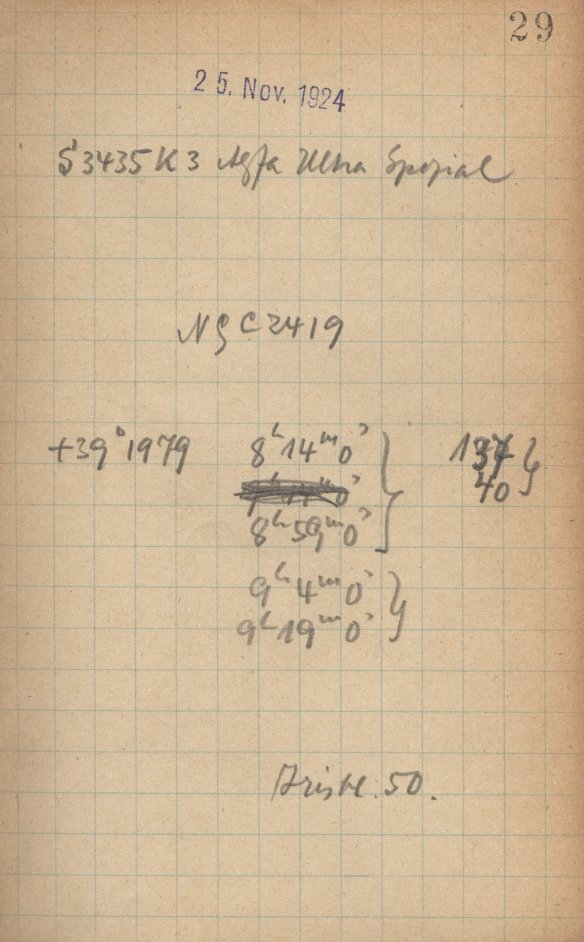 29
25. Nov. 1924
S 3435 K 3 Agfa Ultra Spezial
NGC 2419
+39° 1979 8ʰ14ᵐ0ˢ
40
8ʰ59ᵐ0ˢ
9ʰ4ᵐ0ˢ
9ʰ19ᵐ0ˢ
50.